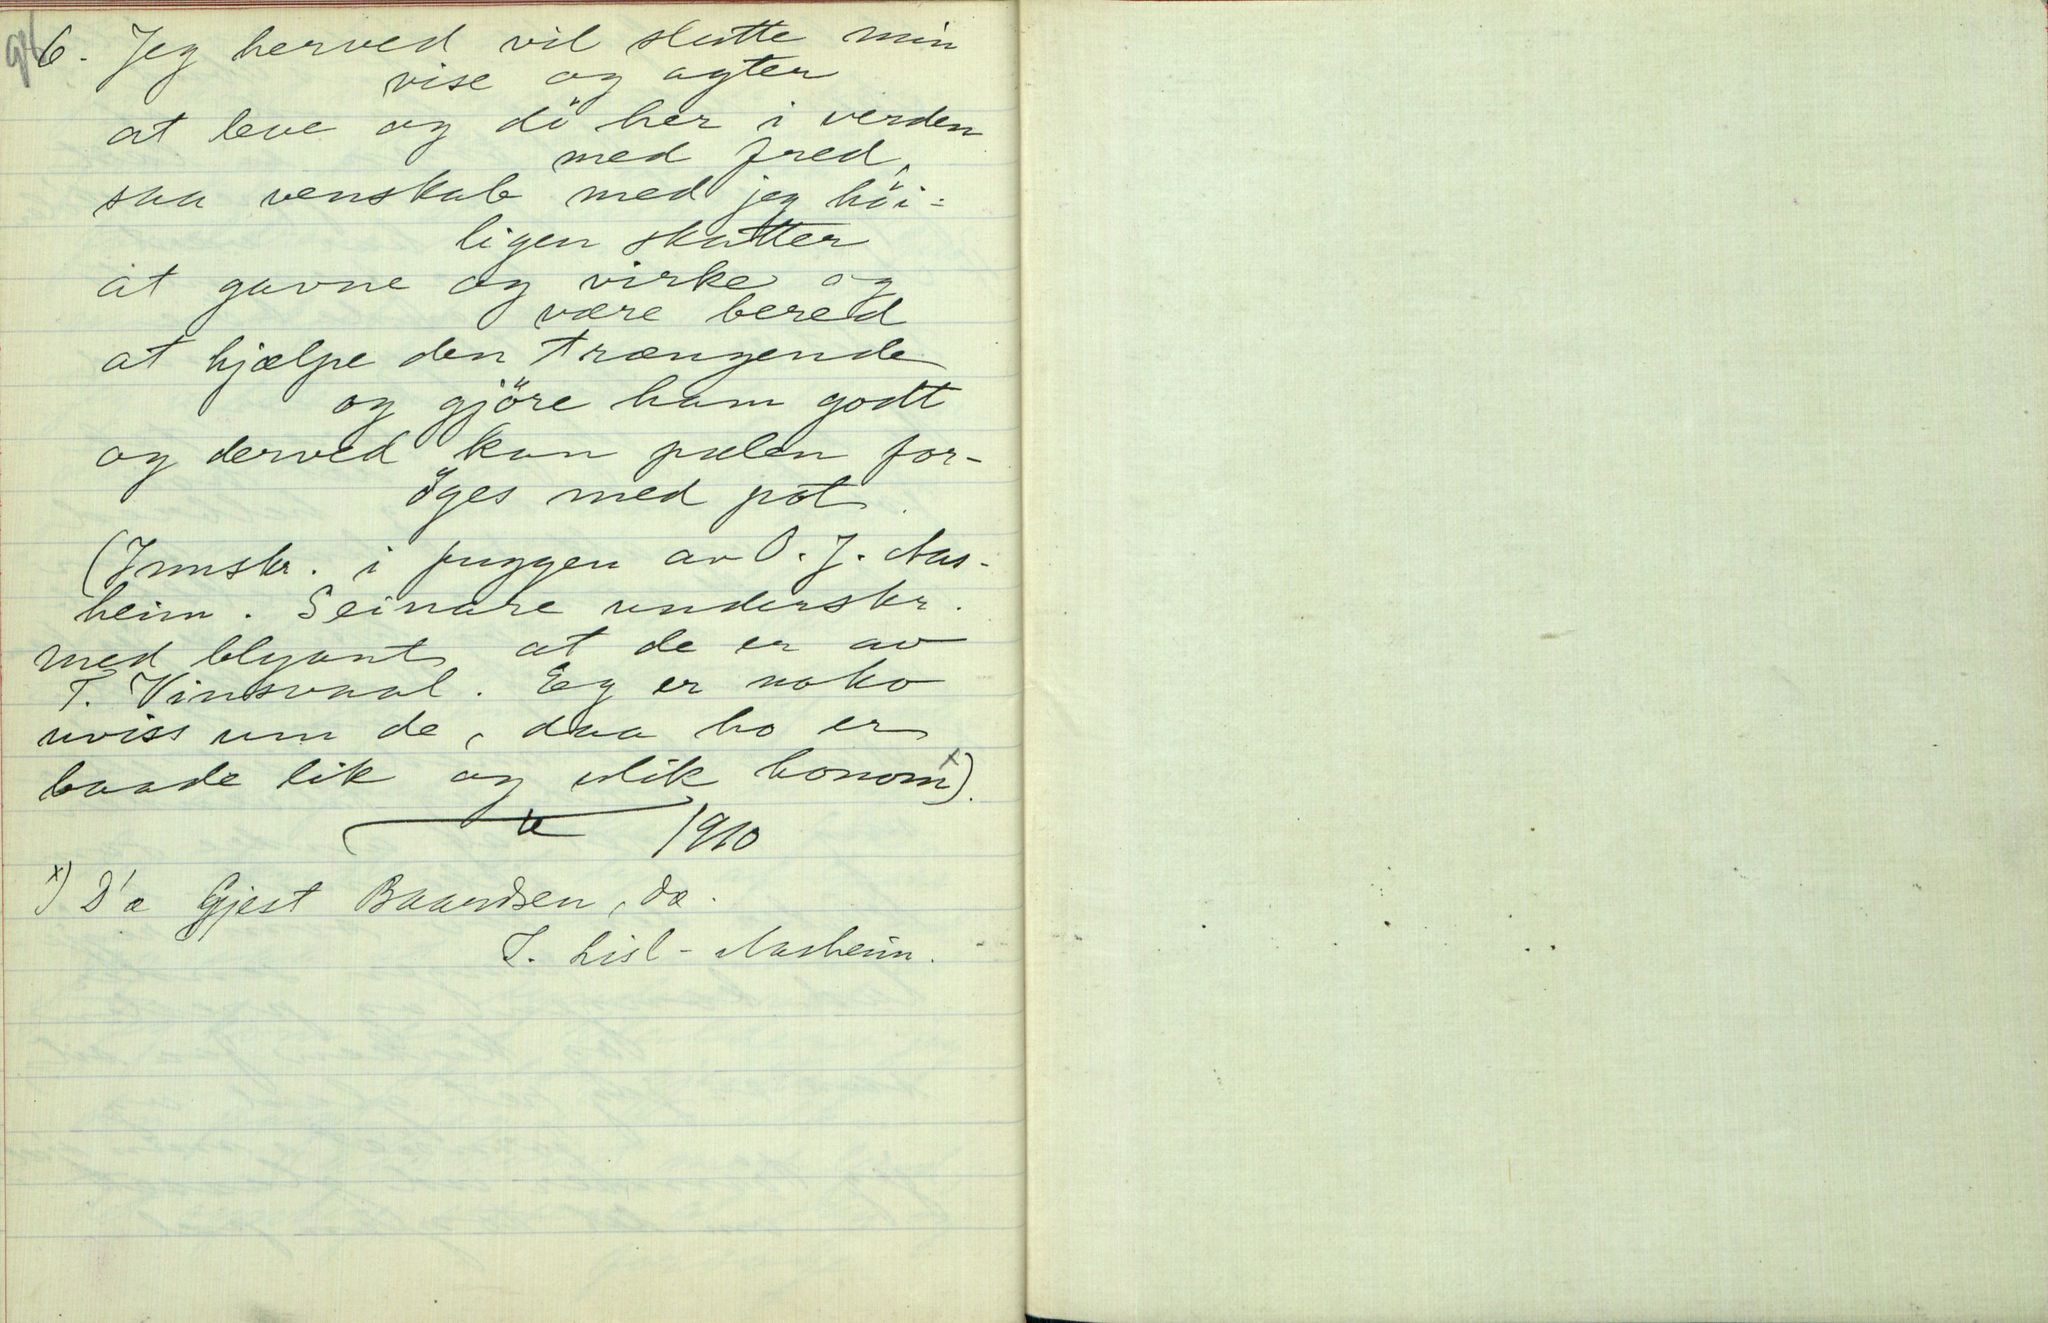 96
6. Jeg herved vil slutte min
vise og agter
at leve og dö her i verden
med fred,
saa venskab med jeg höi=
ligen skatter
at gavne og virke og
være bered
at hjælpe den trængende
og gjöre ham godt
og derved kan pælen for-
öges med pot.
(Innskr. i puggen av O. J. Aas-
heim. Seinare underskr.
med blyant at de er av
T. Vinsvaal. Eg er noko
uviss um de, daa ho er
baade lik og ulik honom x).
1910
x) D'æ Gjest Baardsen, dæ.
J. Lisl-Aasheim.